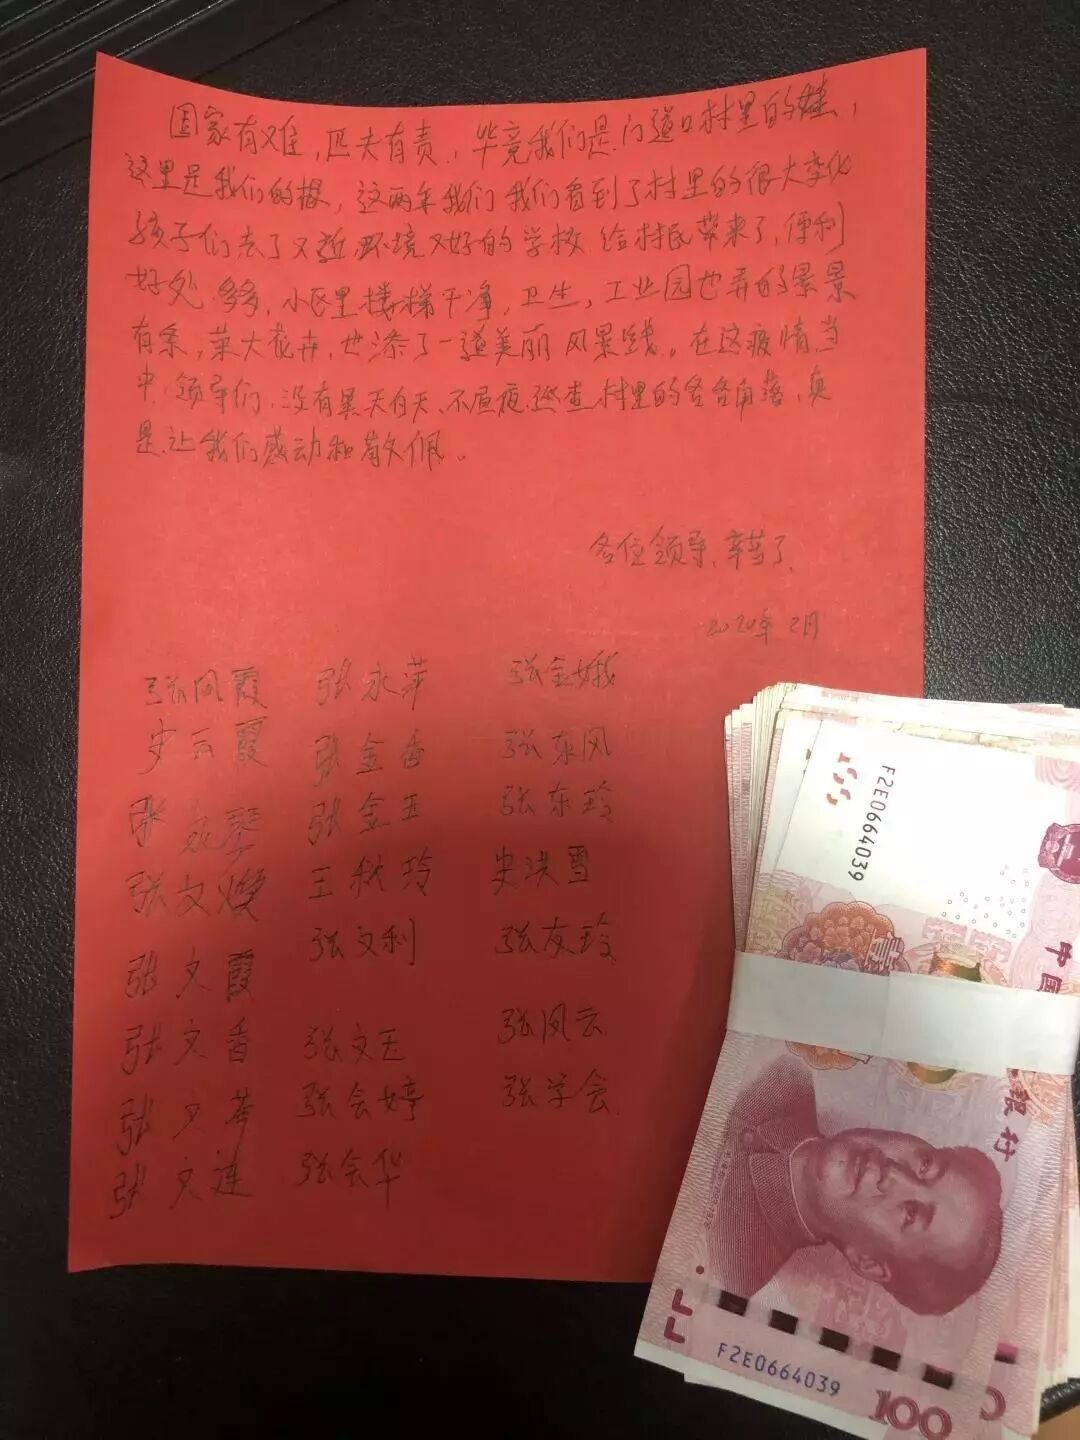 国家有难，匹夫有责，毕竟我们是门道口村里的娃，
这里是我们的根，这两年我们我们看到了村里的很大变化
孩子们去了又近环境又好的学校 给村民带来了，便利
好处多多，小区里楼梯干净，卫生，工业园也弄的景景
有条，菜大花卉，也添了一道美丽风景线。在这疫情当
中，领导们，没有黑天白天、不昼夜巡查村里的各各角落，真
是让我们感动和敬佩。
各位领导，辛苦了。
2020年2月
张凤霞 张永萍 张金娥
史云霞 张金香 张东风
张 琴 张金玉 张东玲
张文焕 王秋玲 史洪雪
张文利 张友玲
张文霞
张文香 张文玉 张凤云
张文芩 张会婷 张学会
张文连 张会华
F2E0664039
中国
银行
F2E0664039
100